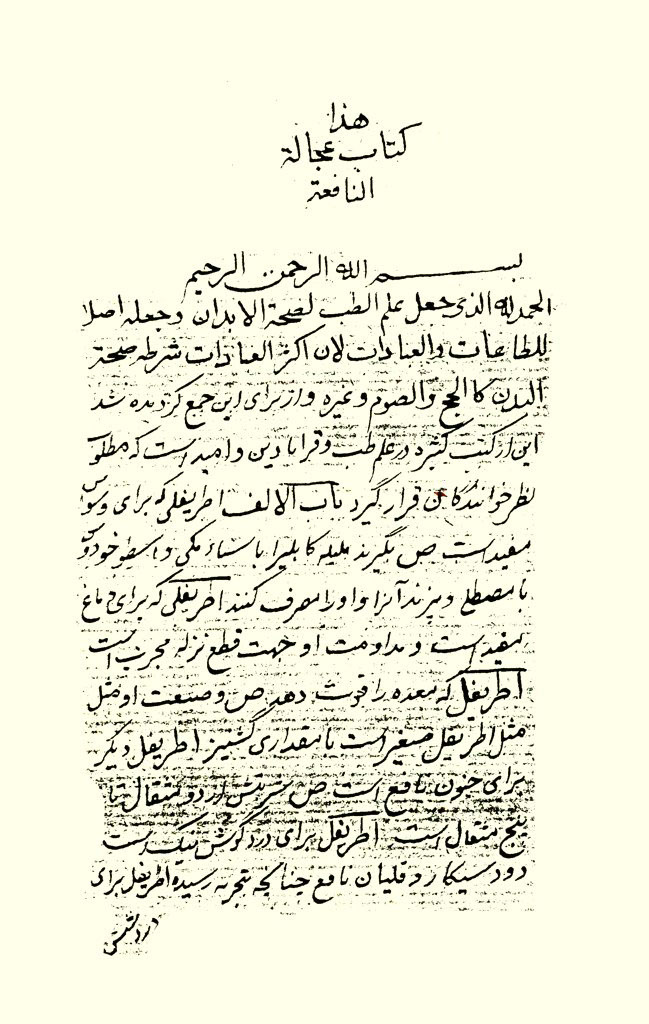 هذا
كتاب عجالة
النافعة
بسم الله الرحمن الرحيم
الحمدلله الذي جعل علم الطب لصحة الابدان و جعله اصلا
للطاعات والعبادات لان اكثر العبادات شرطه صحة
البدن كالحج والصوم وغيره و از برای این جمع کردیده شد
این از کتب کثیره در علم طب وقرابادین و امید است که مطلوب
نظر خوانندکان قرار گیرد باب الالف اطریفلی که برای وسواس
مفید است ص بگیرند هلیله کابلیرا با سناء مکی و اسطوخودوس
با مصطلی و پزند آنرا و اورا مصرف کنند اطریفلی که برای دماغ
مفید است و مداومت او جهت قطع نزله مجرب است
اطریفل که معده را قوت دهد ص و صنعت او مثل
مثل اطریفل صغیر است با مقداری گشنیز اطریفل دیگر
برای جنون نافع است ص شربتش از دو مثقال تا
پنج مثقال است اطریفل برای درد گوش نیک است
دود سیکار و قلیان نافع چنانچه بتجربه رسیده اطریفل برای